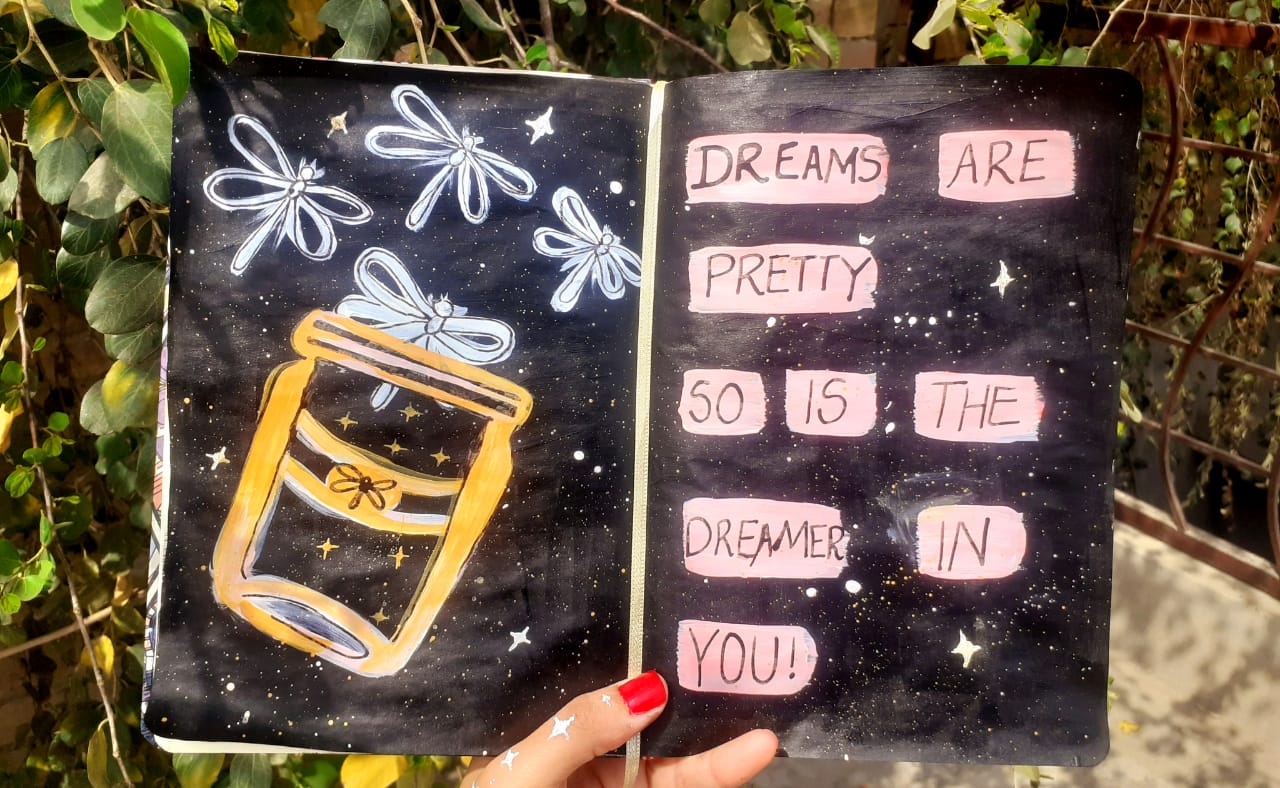 DREAMS ARE
PRETTY
SO IS THE
DREAMER IN
YOU!